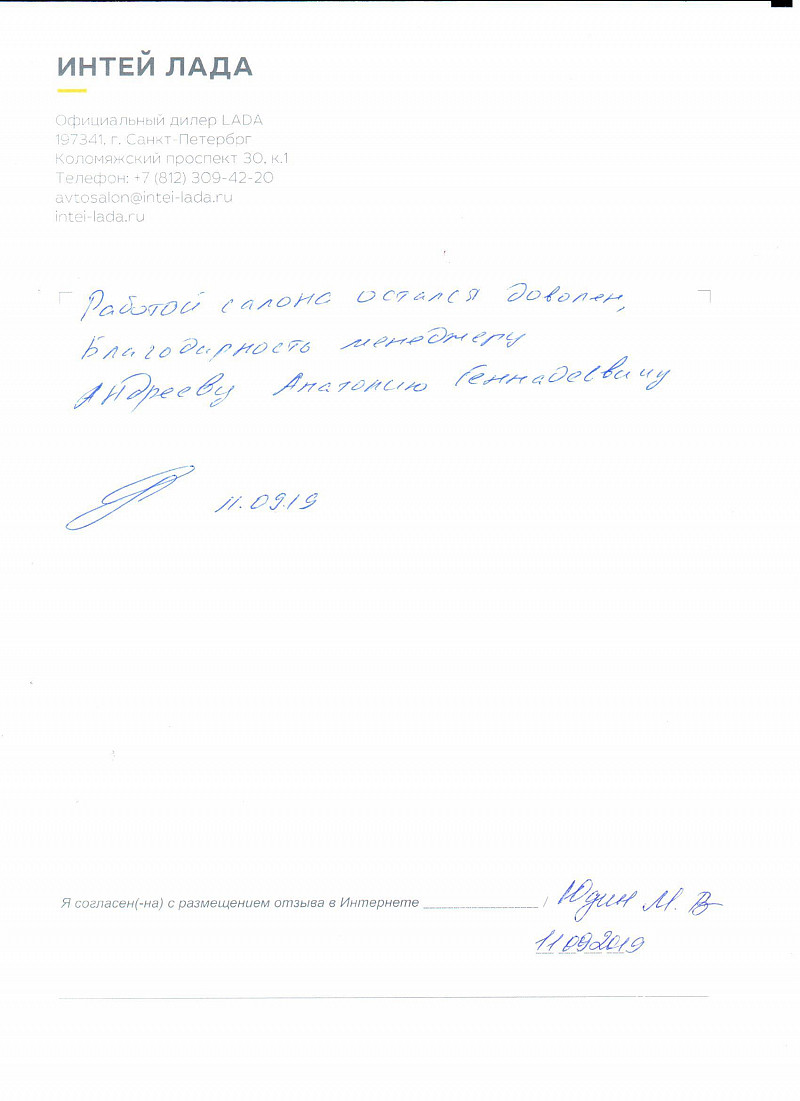 ИНТЕЙ ЛАДА
Официальный дилер LADA
197341, г. Санкт-Петербрг
Коломяжский проспект 30, к.1
Телефон: +7 (812) 309-42-20
avtosalon@intei-lada.ru
intei-lada.ru
Работой салона остался доволен,
Благодарность менеджеру
Андрееву Анатолию Геннадьевичу
11.09.19
Я согласен(-на) с размещением отзыва в Интернете ________________ / Юдин М. В
11 09 2019